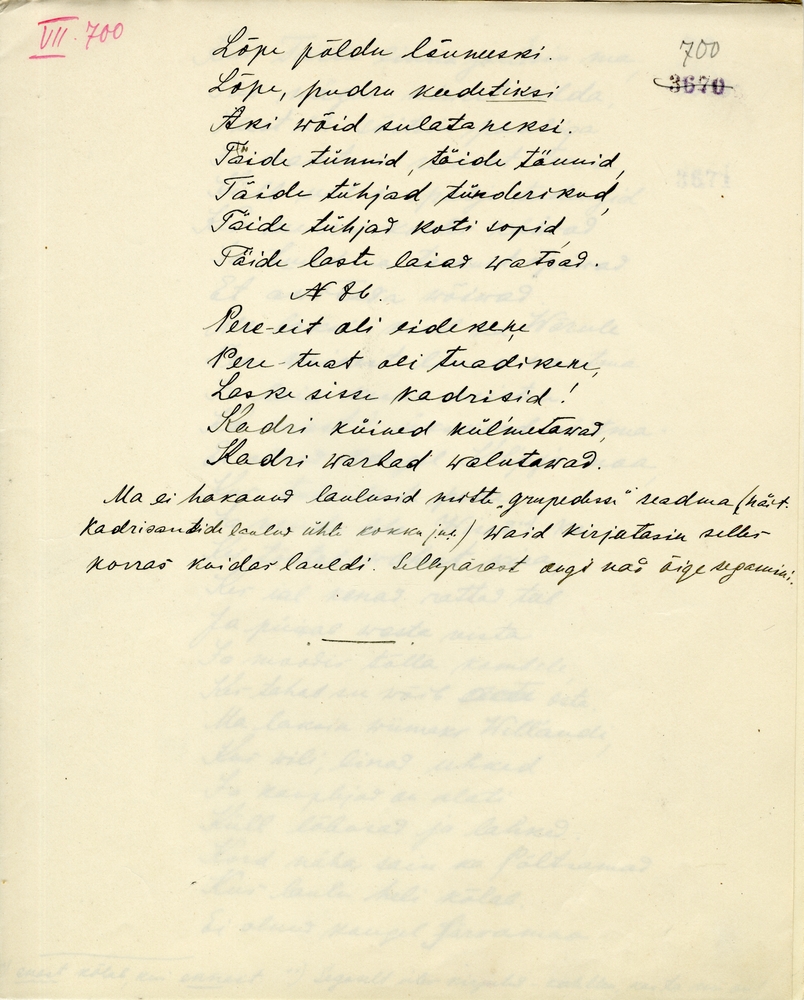 VII. 700
700
3670
Lõpe põldu lõuneeski.
Lõpe, pudru keedetiksi
Aki wõid sulataneksi.
Täide tünnid, täide tönnid,
Täide tühjad tünderikud,
Täide tühjad koti sopid,
Täide laste laiad watsad.
N 86.
Pere-eit oli eidekene,
Pere-tuat oli tuadikene,
Laske sisse kadrisid!
Kadri küined külmetawad,
Kadri warbad walutawad.
Ma ei hakanud laulusid mitte „grupedesse" seadma (näit.
Kadrisantide laulud ühte kokku jne.) waid kirjutasin selles
korras kuidas lauldi. Sellepärast ongi nad õige segamini.